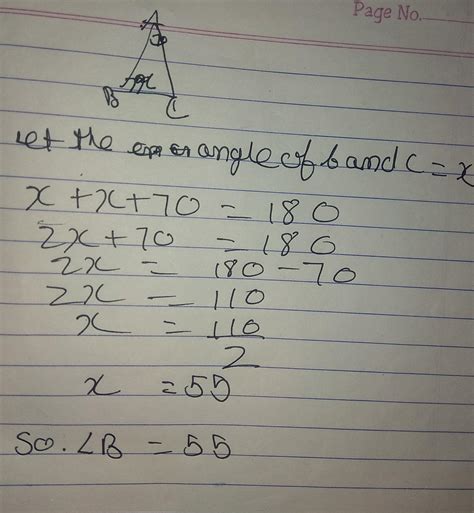 Page No.
A
70
x x
B
C
Let the angle of b and C = x
x + x + 70 = 180
2x + 70 = 180
2x = 180 - 70
2x = 110
x = 110
2
x = 55
SO. ∠B = 55